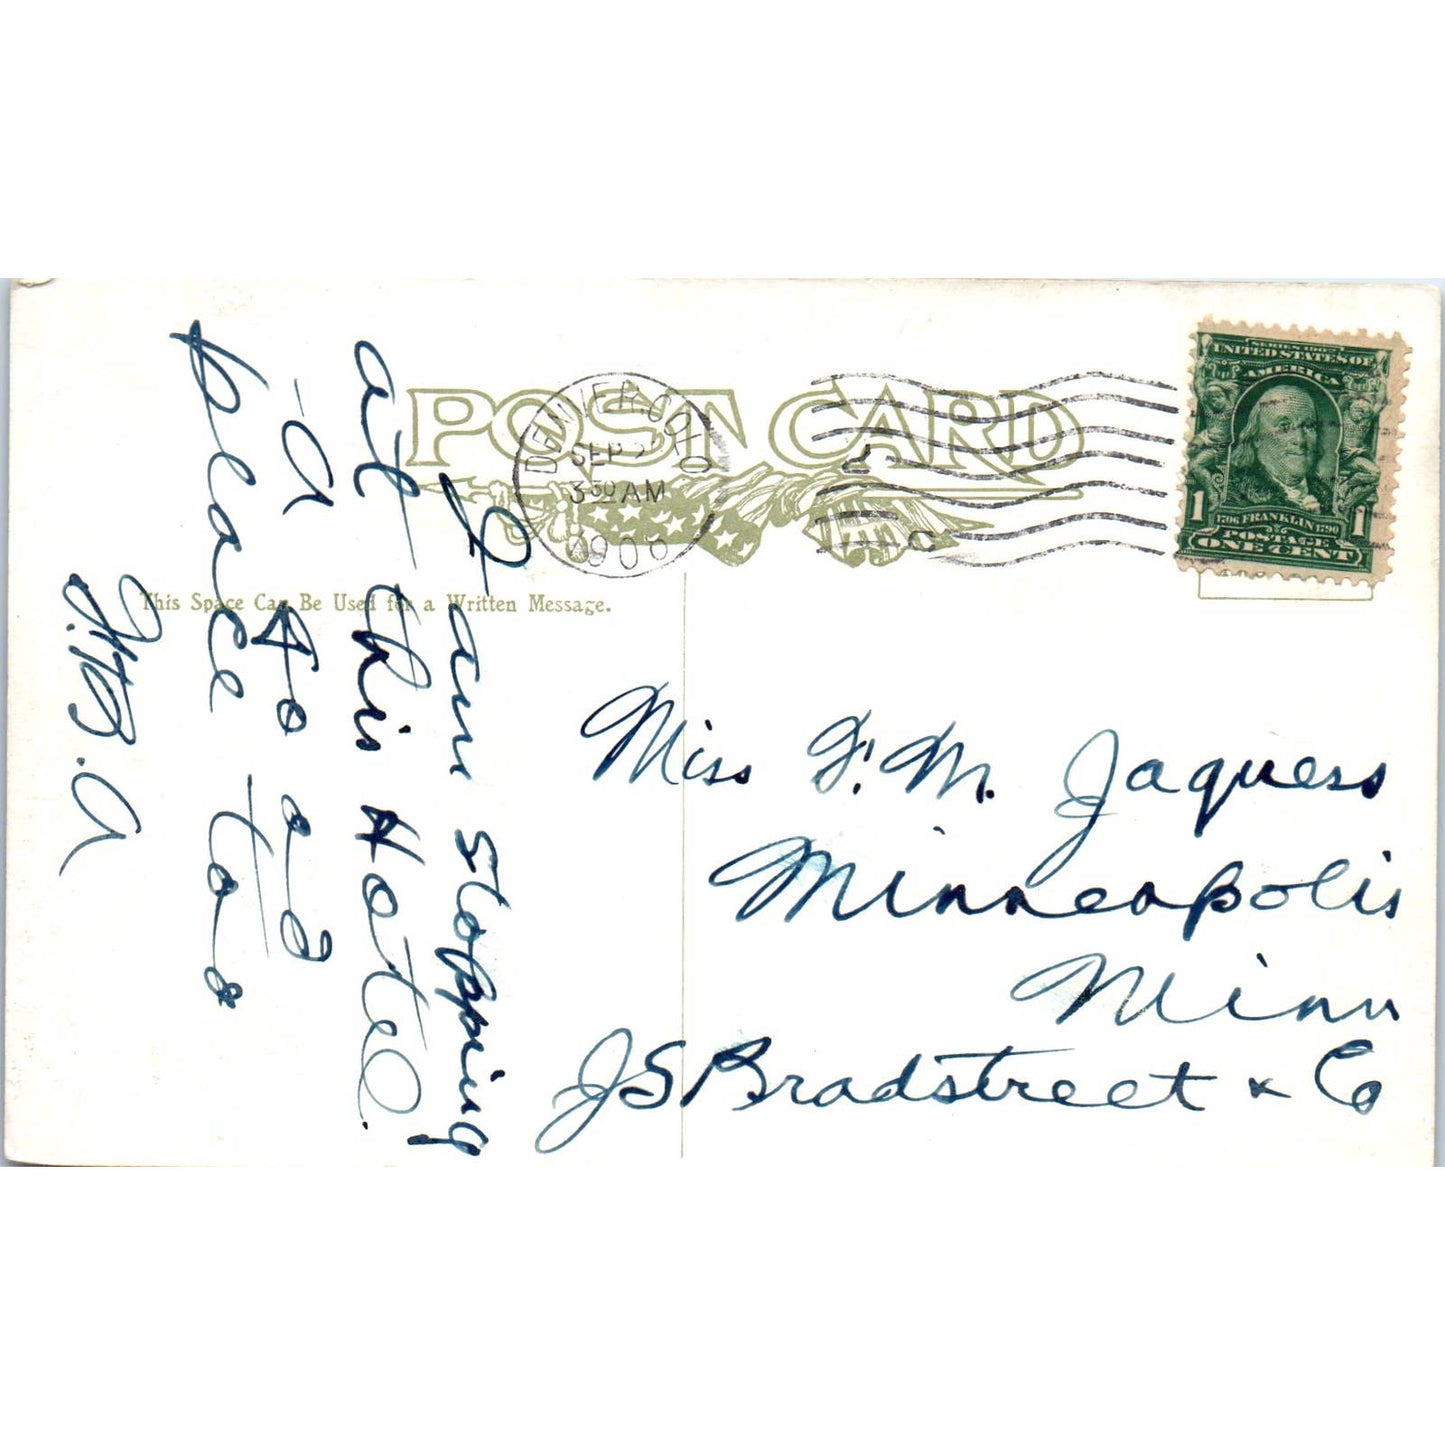 POST CARD
DENVER, COLO
SEP
3 30 AM
1908
SERIES 1902
UNITED STATES OF
AMERICA
1 1
1706 FRANKLIN 1790
POSTAGE
ONE CENT
This Space Can Be Used for a Written Message.
I am stopping
at this Hotel.
a good
place to
Miss F. M. Jaquess
Minneapolis
Minn
J S Bradstreet & Co